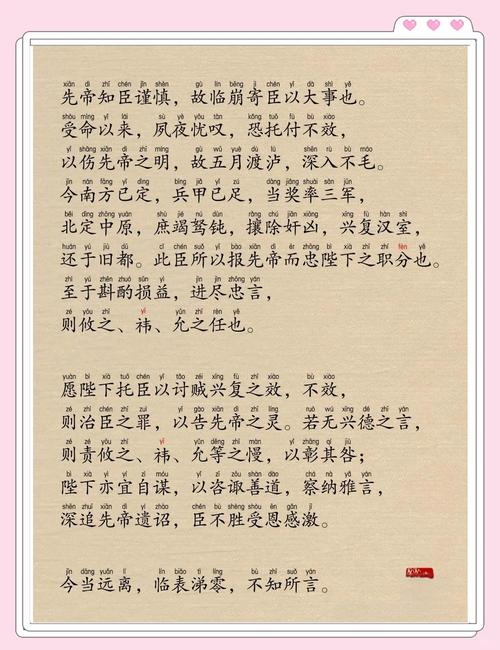 xiān dì zhī chén jǐn shèn gù lín bēng jì chén yǐ dà shì yě
先帝知臣谨慎，故临崩寄臣以大事也。
shòu mìng yǐ lái sù yè yōu tàn kǒng tuō fù bù xiào
受命以来，夙夜忧叹，恐托付不效，
yǐ shāng xiān dì zhī míng gù wǔ yuè dù lú shēn rù bù máo
以伤先帝之明，故五月渡泸，深入不毛。
jīn nán fāng yǐ dìng bīng jiǎ yǐ zú dāng jiǎng shuài sān jūn
今南方已定，兵甲已足，当奖率三军，
běi dìng zhōng yuán shù jié nú dùn rǎng chú jiān xiōng xīng fù hàn shì
北定中原，庶竭驽钝，攘除奸凶，兴复汉室，
huán yú jiù dū cǐ chén suǒ yǐ bào xiān dì ér zhōng bì xià zhī zhí fèn yě
还于旧都。此臣所以报先帝而忠陛下之职分也。
zhì yú zhēn zhuó sǔn yì jìn jìn zhōng yán
至于斟酌损益，进尽忠言，
zé yōu zhī yī yǔn zhī rèn yě
则攸之、祎、允之任也。
yuàn bì xià tuō chén yǐ tǎo zéi xīng fù zhī xiào bù xiào
愿陛下托臣以讨贼兴复之效，不效，
zé zhì chén zhī zuì yǐ gào xiān dì zhī líng ruò wú xīng dé zhī yán
则治臣之罪，以告先帝之灵。若无兴德之言，
zé zé yōu zhī yī yǔn děng zhī màn yǐ zhāng qí jiù
则责攸之、祎、允等之慢，以彰其咎；
bì xià yì yí zì móu yǐ zī zōu shàn dào chá nà yǎ yán
陛下亦宜自谋，以咨诹善道，察纳雅言，
shēn zhuī xiān dì yí zhào chén bù shèng shòu ēn gǎn jī
深追先帝遗诏，臣不胜受恩感激。
jīn dāng yuǎn lí lín biǎo tì líng bù zhī suǒ yán
今当远离，临表涕零，不知所言。